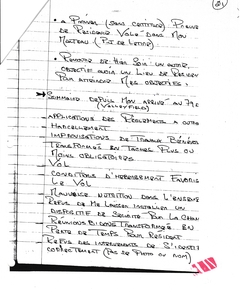 (21)
• A PRENDRE (SANS CERTITUDE) PHOTO
DE PERSONNE VOLÉ DANS MON
MANTEAU (PAS DE LETTRE)
• REMONTER DE HIER SOIR UN AUTRE
OBJECTIF AVOIR UN LIEU DE
POUR ATTEINDRE MES OBJECTIFS
→ SOMMAIRE DEPUIS MON ARRIVÉ AU
(VALLEYFIELD)
APPLICATIONS DES RÈGLEMENTS A OUTRE
HARCELLEMENT
IMPROVISATIONS DE TRAVAIL BÉNÉVO
TRANSFORMÉ EN TACHES PLUS OU
MOINS OBLIGATOIRES
VOL
CONDITIONS D'HÉBERGEMENT FAVORIS
LE VOL
MAUVAISE NUTRITION DANS L'ENSEMB
REFUS DE ME LAISSER INSTALLER UN
DISPOSITIF DE SÉCURITÉ POUR LA CHAM
RÉUNIONS BIDONS TRANSFORMÉ EN
PERTE DE TEMPS POUR RESIDENT
REFUS DES INTERVENANTS DE S'IDENTIF
CORRECTEMENT (PAS DE PHOTO OU NOM)